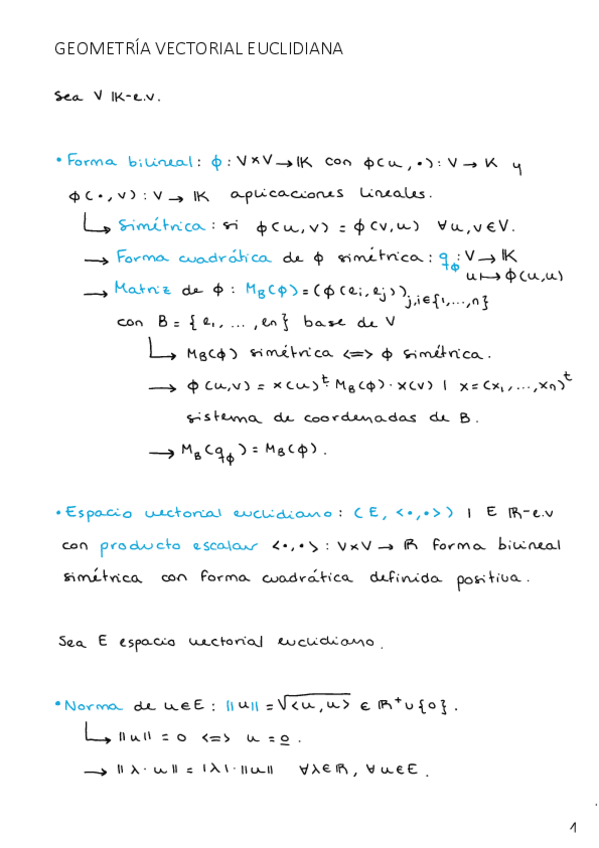 GEOMETRÍA VECTORIAL EUCLIDIANA
Sea V 𝕂-e.v.
• Forma bilineal: ϕ: V×V → 𝕂 con ϕ(u, •): V → K y
ϕ(•, v): V → 𝕂 aplicaciones lineales.
↳ Simétrica: si ϕ(u,v) = ϕ(v,u) ∀u,v∈V.
→ Forma cuadrática de ϕ simétrica: q_ϕ: V → 𝕂
u ↦ ϕ(u,u)
→ Matriz de ϕ: M_B(ϕ) = (ϕ(e_i, e_j))_{j,i∈{1,...,n}}
con B = {e_1, ..., e_n} base de V
↳ M_B(ϕ) simétrica <=> ϕ simétrica.
→ ϕ(u,v) = x(u)^t · M_B(ϕ) · x(v) | x = (x_1, ..., x_n)^t
sistema de coordenadas de B.
→ M_B(q_ϕ) = M_B(ϕ).
• Espacio vectorial euclidiano: (E, <•,•>) | E ℝ-e.v
con producto escalar <•,•>: V×V → ℝ forma bilineal
simétrica con forma cuadrática definida positiva.
Sea E espacio vectorial euclidiano.
• Norma de u∈E: ||u|| = √<u,u> ∈ ℝ⁺∪{0}.
↳ ||u|| = 0 <=> u = 0̲.
→ ||λ·u|| = |λ|·||u|| ∀λ∈ℝ, ∀u∈E.
1